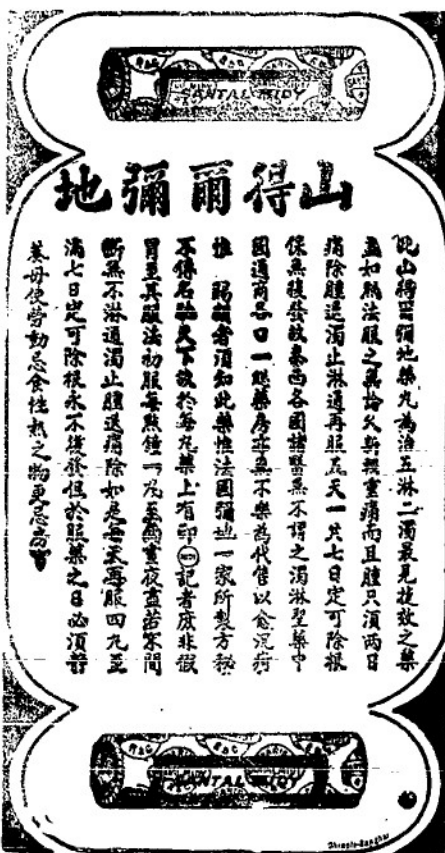 SANTAL MIDY
山得爾彌地
此山得爾彌地藥丸為治五淋二濁最見捷效之藥
盖如熱法服之無論久新輕重痛而且腫只須兩日
痛除腫退濁止淋通再照五天一共七日定可除根
保無復發故泰西各國諸醫無不謂之濁淋聖藥中
國通商各口一點藥房亦無不樂為代售以愈沉疴
惟 賜顧者須知此藥惟法國彌地一家所製方秘
不傳名著天下故於每丸藥上有印 MIDY 記者庶非假
冒至其服法初服每點鐘一丸至為晝夜盡若寐間
斷無不淋通濁止腫退痛除如是每天再服四丸至
滿七日定可除根永不復發但於照藥之日必須靜
養毋使勞動忌食性熱之物更忌房
SANTAL MIDY
Shanghai